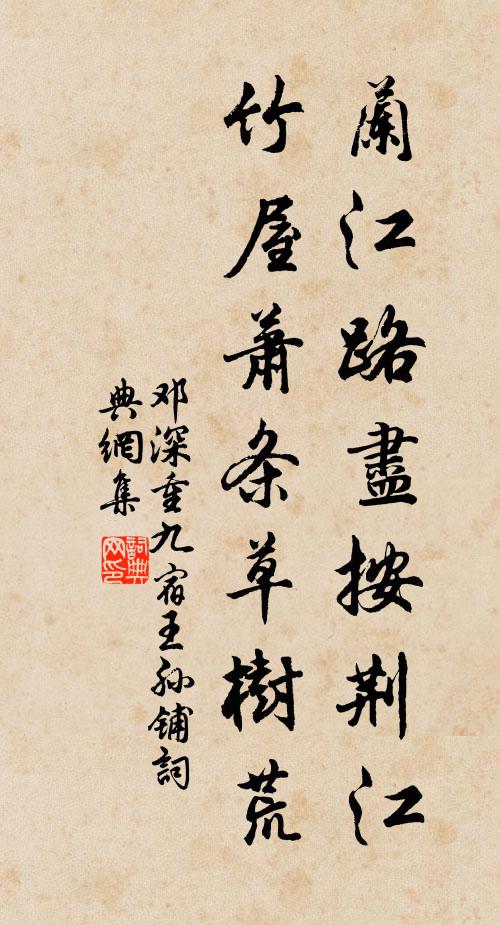 蘭江路盡按荆江
竹屋蕭条草樹荒
邓深重九宿王孙铺詞
典網集
詞典網印